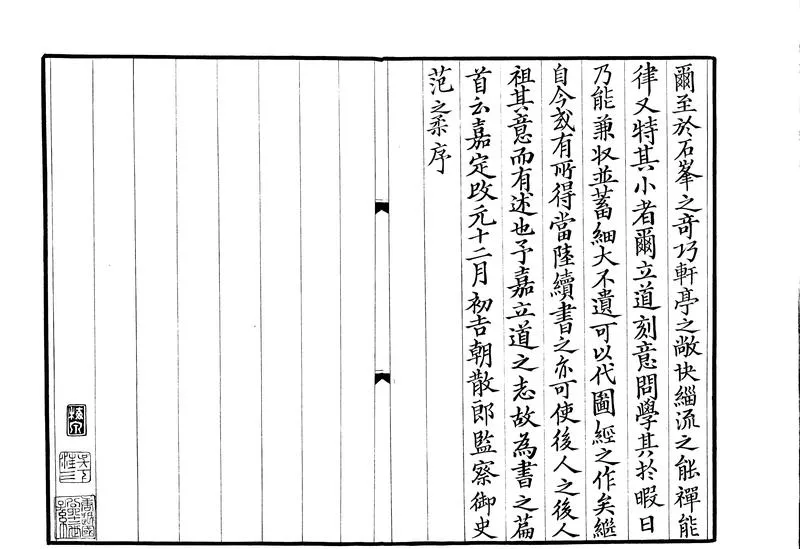 爾至於石峯之竒巧軒亭之敞快緇流之能禪能
律又特其小者爾立道刻意問學其於暇日
乃能兼収並蓄細大不遺可以代圖經之作矣繼
自今或有所得當陸續書之亦可使後人之後人
祖其意而有述也予嘉立道之志故為書之篇
首云嘉定改元十二月初吉朝散郎監察御史
范之柔序